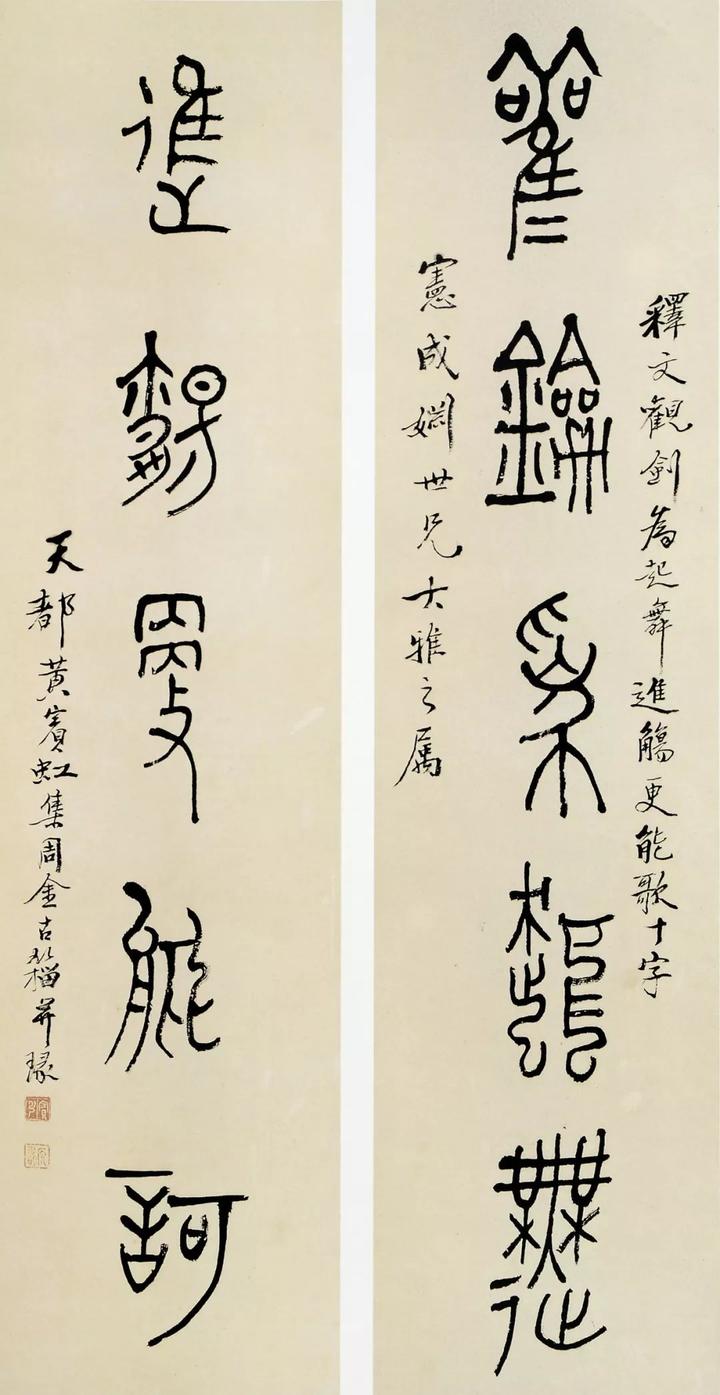 釋文觀劍為起舞進觴更能歌十字
觀劍為起舞
憲成婣世兄大雅之属
進觴更能歌
天都黃賓虹集周金古籀并